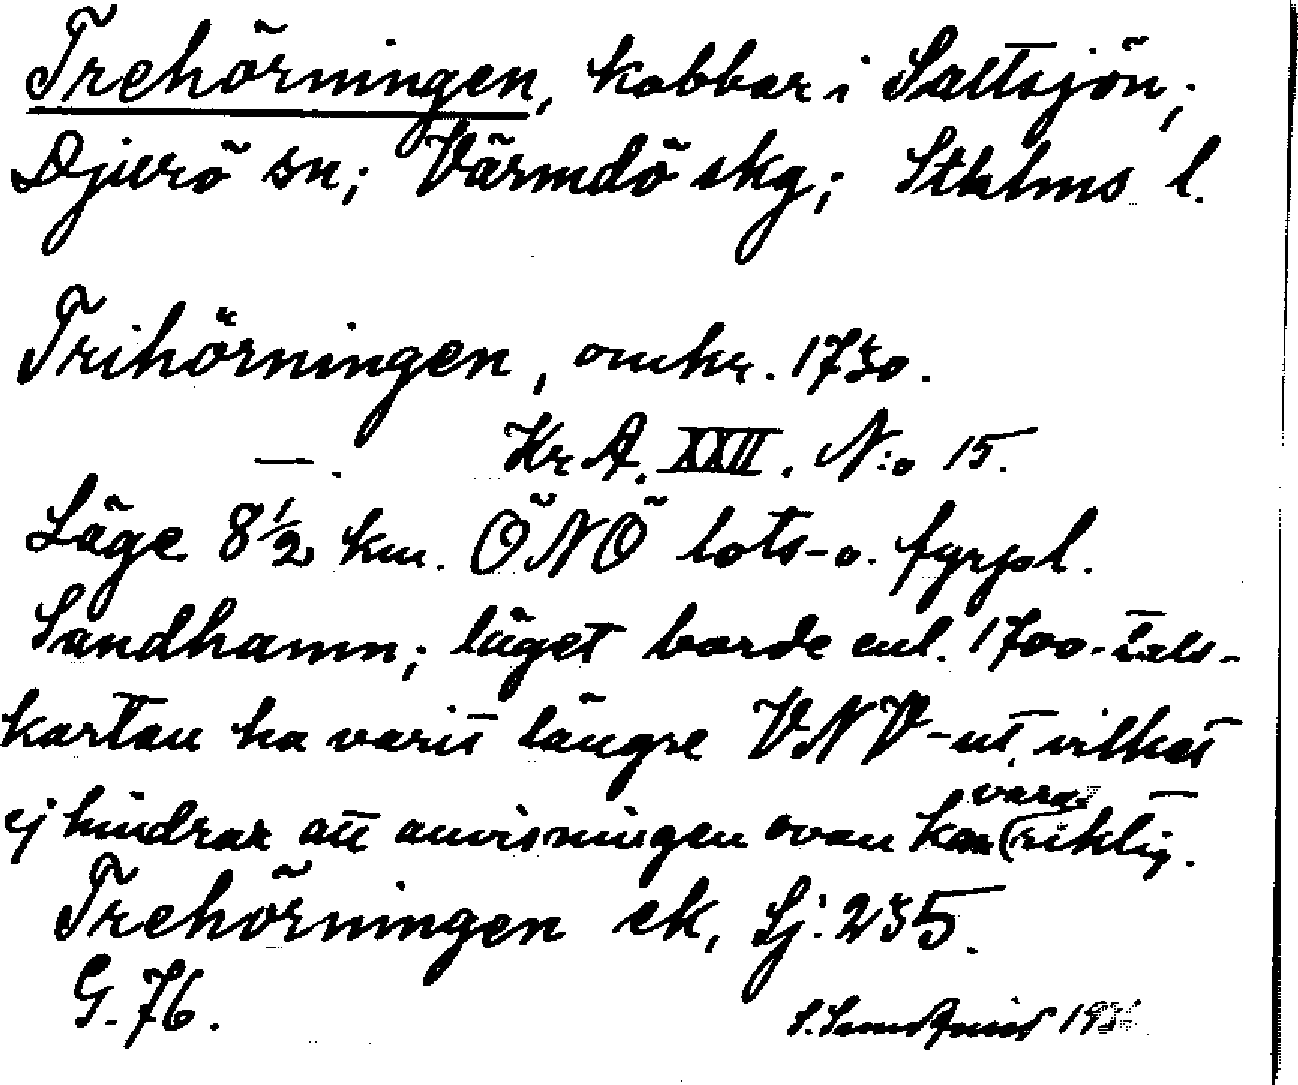 Trehörningen, kobbar i Saltsjön;
Djurö sn; Värmdö skg; Sthlms l.
Trihörningen, omkr. 1730.
—. Kr A. XXII. N:o 15.
Läge 8½ km. ÖNÖ lots- o. fyrpl.
Sandhamn; läget borde enl. 1700-tals-
kartan ha varit längre VNV-ut, vilket
ej hindrar att anvisningen ovan kan vara riktig.
Trehörningen ek, Sj. 235.
G. 76.